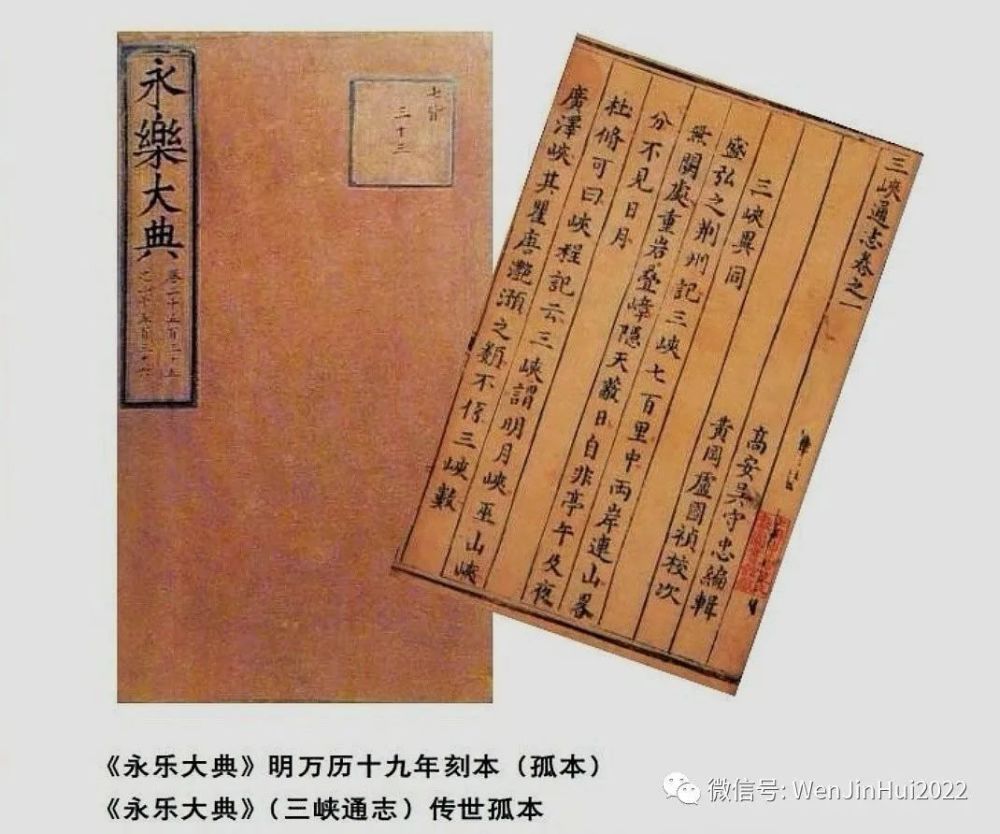 永樂大典
卷二千五百三十五
之二千五百三十六
七皆
三十三
三峽通志卷之一
高安吳守忠編輯
黃岡盧國禎校次
三峽異同
盛弘之荆州記三峽七百里中兩岸連山畧
無關處重岩疊嶂隱天蔽日自非亭午及夜
分不見日月
杜脩可曰峽程記云三峽謂明月峽巫山峽
廣澤峽其瞿唐灧澦之類不係三峽數
《永乐大典》明万历十九年刻本（孤本）
《永乐大典》（三峡通志）传世孤本
微信号: WenJinHui2022